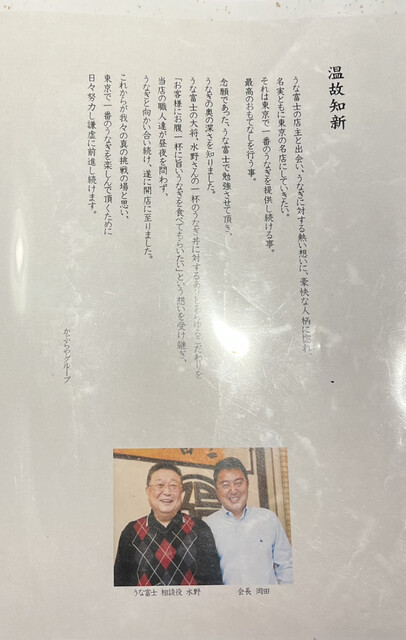 温故知新
うな富士の店主と出会い、うなぎに対する熱い想いに、豪快な人柄に惚れ
名実ともに東京の名店にしていきたい。
それは東京で一番のうなぎを提供し続ける事。
最高のおもてなしを行う事。
念願であった、うな富士で勉強させて頂き、
うなぎの奥の深さを知りました。
うな富士の大将、水野さんの一杯のうなぎ丼に対するありとあらゆるこだわりを
「お客様にお腹一杯に旨いうなぎを食べてもらいたい」という想いを受け継ぎ、
当店の職人達が昼夜を問わず、
うなぎと向かい合い続け、遂に開店に至りました。
これからが我々の真の挑戦の場と思い、
東京で一番のうなぎを楽しんで頂くために
日々努力し謙虚に前進し続けます。
かぶらやグループ
うな富士 相談役 水野
会長 岡田